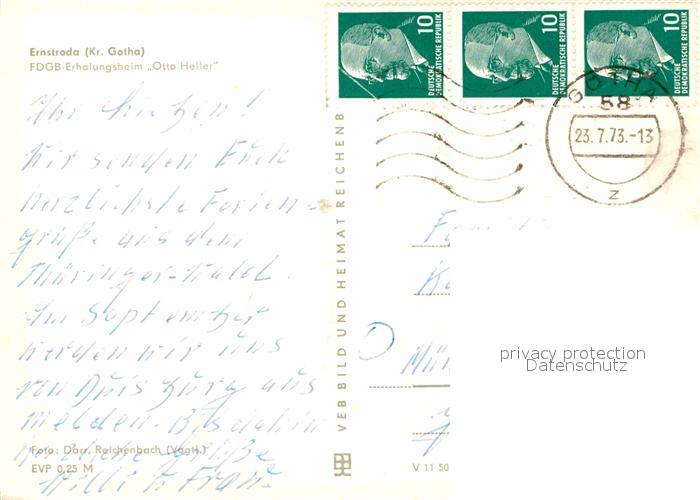 Ernstroda (Kr. Gotha)
FDGB-Erholungsheim „Otto Heller"
Ihr Lieben!
Wir senden Euch
herzlichste Ferien-
grüße aus dem
Thüringer-Wald.
Im September
werden wir uns
von Duisburg aus
melden. Bis dahin
herzliche Grüße
Willi u. Frau.
Foto: Darr, Reichenbach (Vogtl.)
EVP 0,25 M
VEB BILD UND HEIMAT REICHENB
V 11 50
10
DEUTSCHE
DEMOKRATISCHE REPUBLIK
10
DEUTSCHE
DEMOKRATISCHE REPUBLIK
10
DEUTSCHE
DEMOKRATISCHE REPUBLIK
GOTHA
58
23.7.73.-13
z
privacy protection
Datenschutz